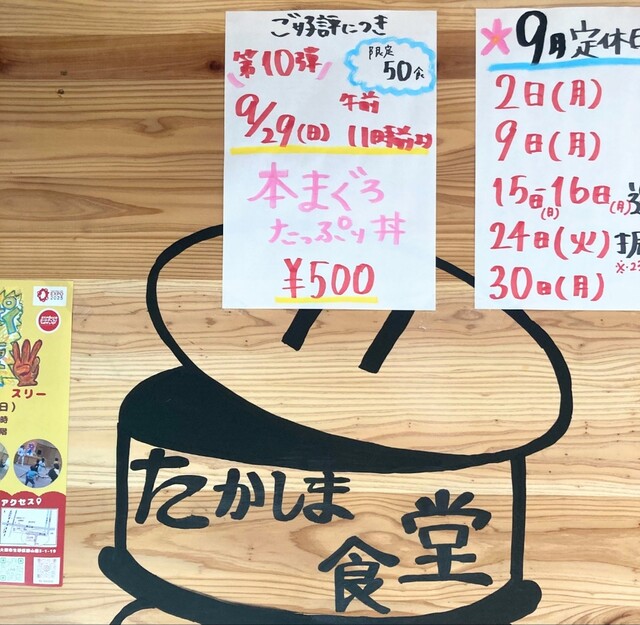 ご好評につき
第10弾
限定
50食
9/29(日)
午前
11時
本まぐろ
たっぷり丼
¥500
9月定休日
2日(月)
9日(月)
15日(日)-16日(月)
24日(火)
30日(月)
EXPO
2025
スリー
アクセス
たかしま
食堂